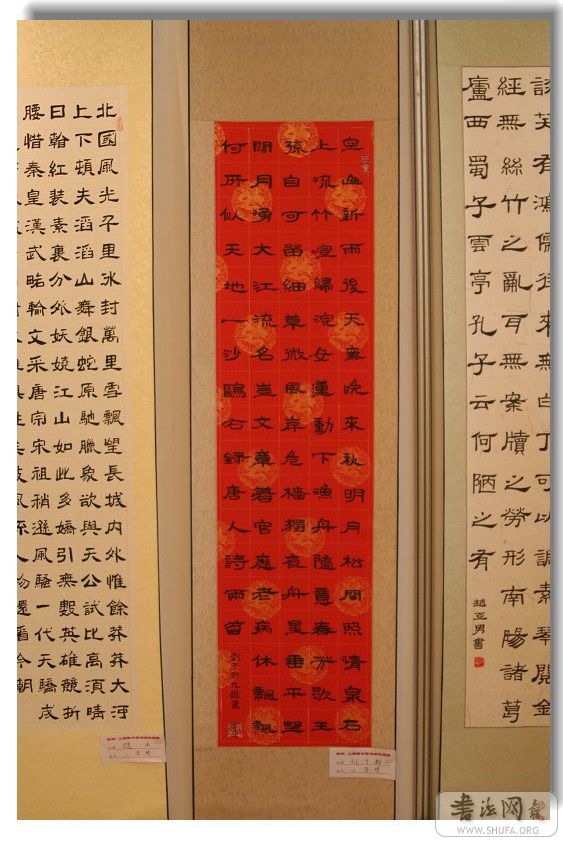 談笑有鴻儒往來無白丁可以調素琴閱金
經無絲竹之亂耳無案牘之勞形南陽諸葛
廬西蜀子雲亭孔子云何陋之有
趙亞男書
空山新雨後天氣晚來秋明月松間照清泉石
上流竹喧歸浣女蓮動下漁舟隨意春芳歇王
孫自可留細草微風岸危檣獨夜舟星垂平野
闊月湧大江流名豈文章著官應老病休飄飄
何所似天地一沙鷗右錄唐人詩兩首
北國風光千里冰封萬里雪飄望長城內外惟餘莽莽大河
上下頓失滔滔山舞銀蛇原馳臘象欲與天公試比高須晴
日紅裝素裹分外妖嬈江山如此多嬌引無數英雄競折
腰惜秦皇漢武略輸文采唐宗宋祖稍遜風騷一代天驕成
書法网
WWW.SHUFA.ORG